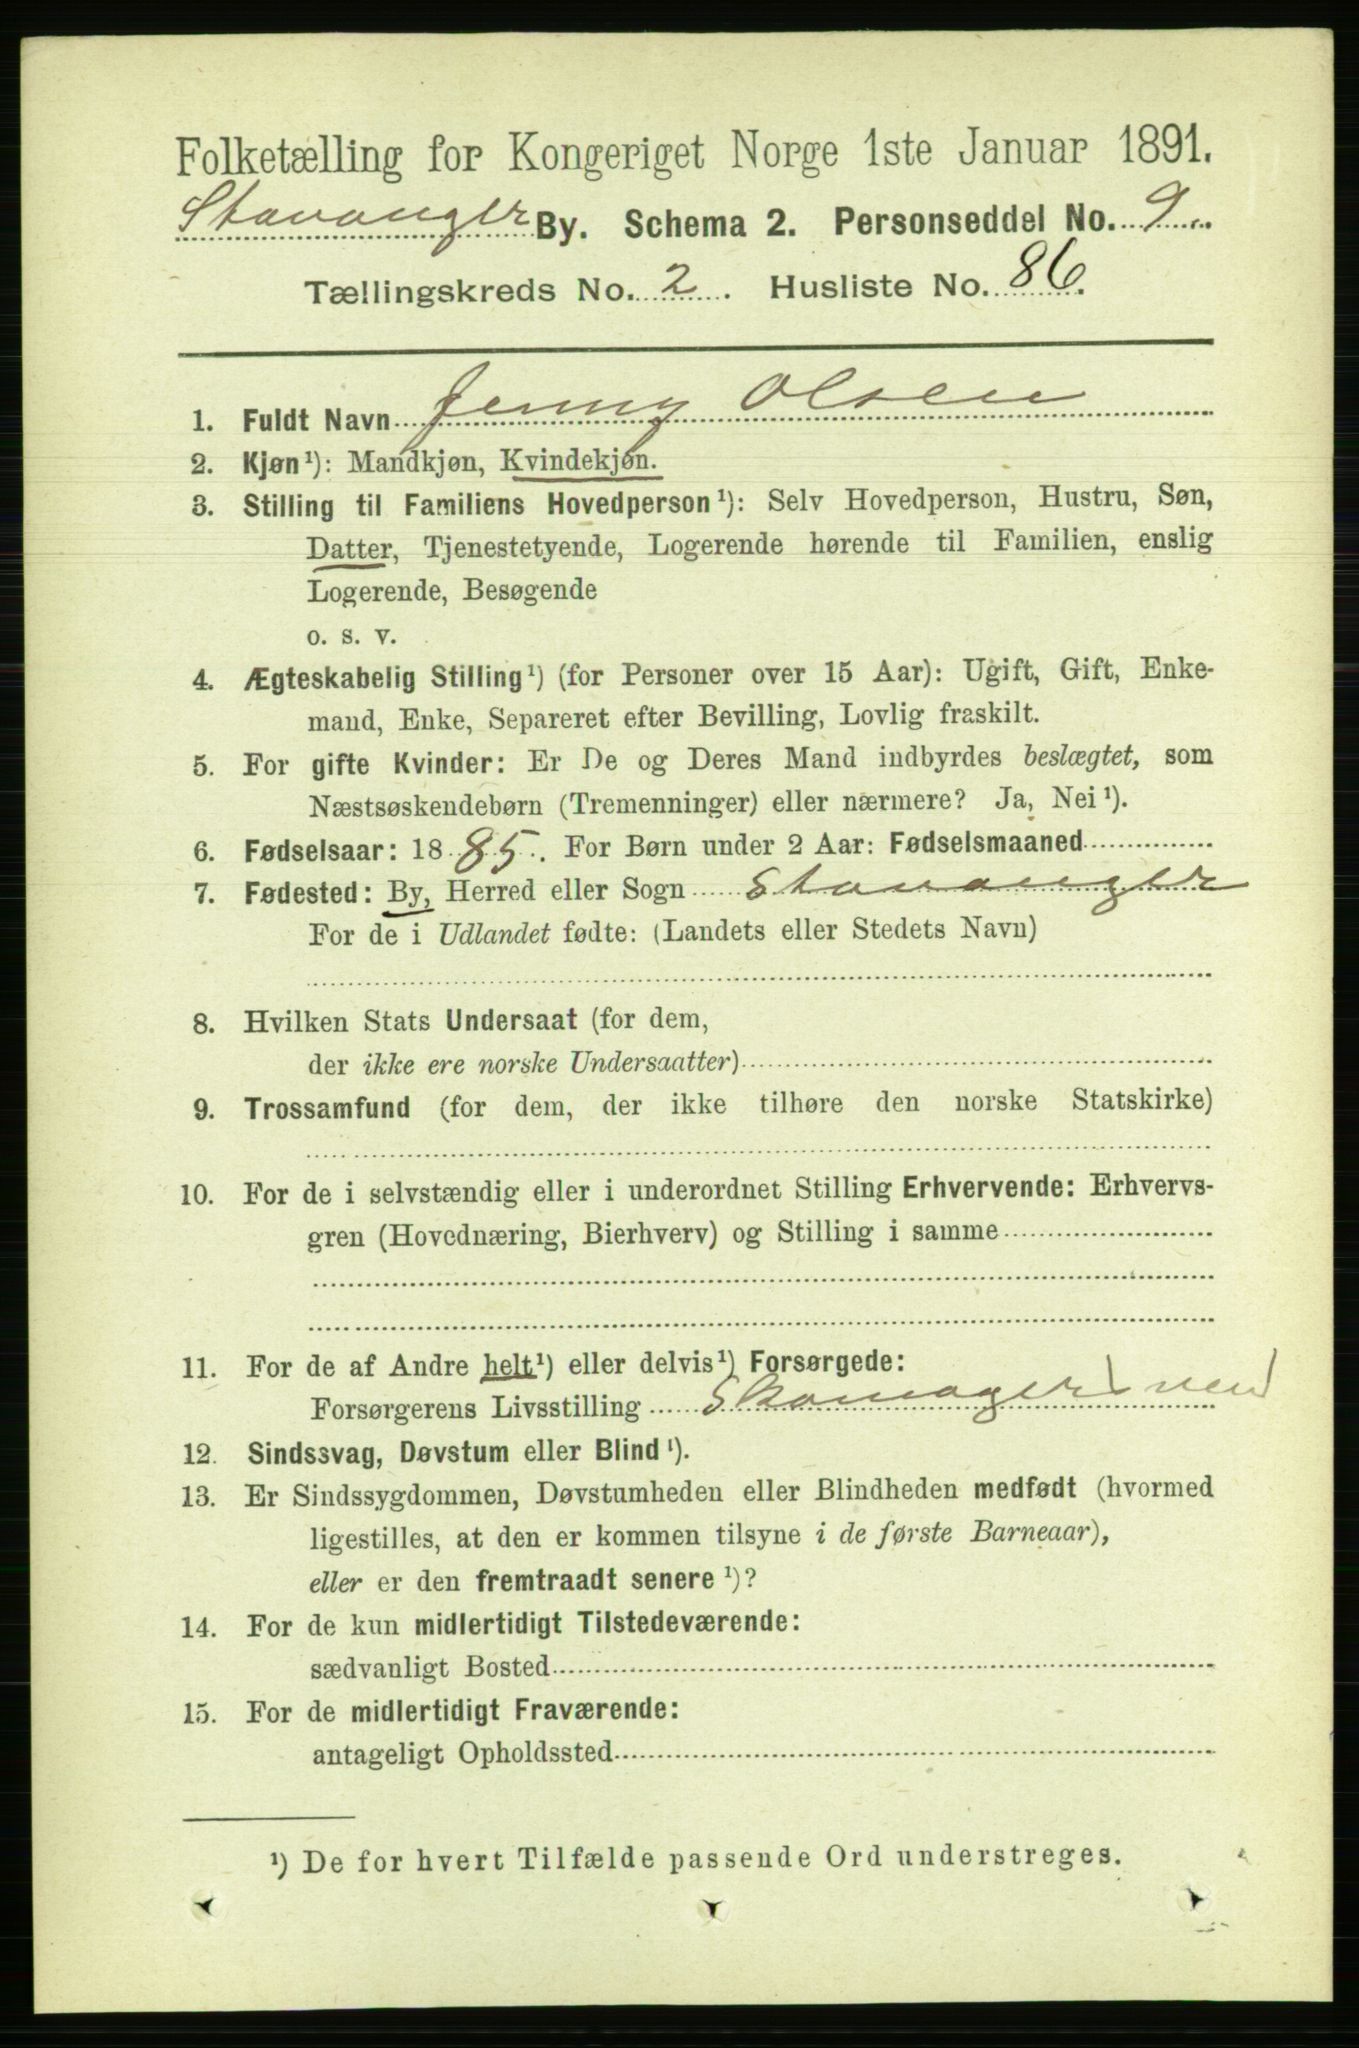 Folketælling for Kongeriget Norge 1ste Januar 1891.
Stavanger By. Schema 2. Personseddel No. 9
Tællingskreds No. 2. Husliste No. 86.
1. Fuldt Navn Jenny Olsen
2. Kjøn¹): Mandkjøn, Kvindekjøn.
3. Stilling til Familiens Hovedperson¹): Selv Hovedperson, Hustru, Søn,
Datter, Tjenestetyende, Logerende hørende til Familien, enslig
Logerende, Besøgende
o. s. v.
4. Ægteskabelig Stilling¹) (for Personer over 15 Aar): Ugift, Gift, Enke-
mand, Enke, Separeret efter Bevilling, Lovlig fraskilt.
5. For gifte Kvinder: Er De og Deres Mand indbyrdes beslægtet, som
Næstsøskendebørn (Tremenninger) eller nærmere? Ja, Nei¹).
6. Fødselsaar: 1885. For Børn under 2 Aar: Fødselsmaaned
7. Fødested: By, Herred eller Sogn Stavanger
For de i Udlandet fødte: (Landets eller Stedets Navn)
8. Hvilken Stats Undersaat (for dem,
der ikke ere norske Undersaatter)
9. Trossamfund (for dem, der ikke tilhøre den norske Statskirke)
10. For de i selvstændig eller i underordnet Stilling Erhvervende: Erhvervs-
gren (Hovednæring, Bierhverv) og Stilling i samme
11. For de af Andre helt¹) eller delvis¹) Forsørgede:
Forsørgerens Livsstilling Skomagersven
12. Sindssvag, Døvstum eller Blind¹).
13. Er Sindssygdommen, Døvstumheden eller Blindheden medfødt (hvormed
ligestilles, at den er kommen tilsyne i de første Barneaar),
eller er den fremtraadt senere¹)?
14. For de kun midlertidigt Tilstedeværende:
sædvanligt Bosted
15. For de midlertidigt Fraværende:
antageligt Opholdssted
¹) De for hvert Tilfælde passende Ord understreges.